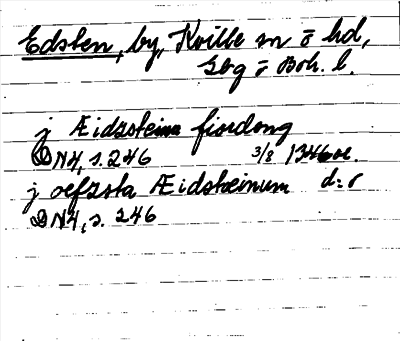 Edsten, by, Kville sn o hd,
Gbg o Boh. l.
j Æidzsteina fiordong
DN4, s. 246 3/8 1346 or.
j oefzsta Æidsteinum d:o
DN4, s. 246